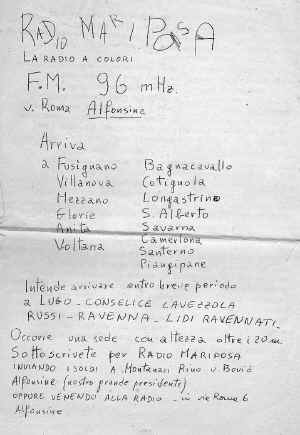 RADIO MARIPOSA
LA RADIO A COLORI
F.M. 96 mHz.
v. Roma Alfonsine
Arriva
a Fusignano Bagnacavallo
Villanova Cotignola
Mezzano Longastrino
Glorie S. Alberto
Anita Savarna
Voltana Camerlona
Santerno
Piangipane
Intende arrivare entro breve periodo
a LUGO - CONSELICE LAVEZZOLA
RUSSI - RAVENNA - LIDI RAVENNATI.
Occorre una sede con altezza oltre i 20 m.
Sottoscrivete per RADIO MARIPOSA
INVIANDO I SOLDI A Montanari Rino v. Bovio
Alfonsine (nostro grande presidente)
OPPURE VENENDO ALLA RADIO - in via Roma 6
Alfonsine